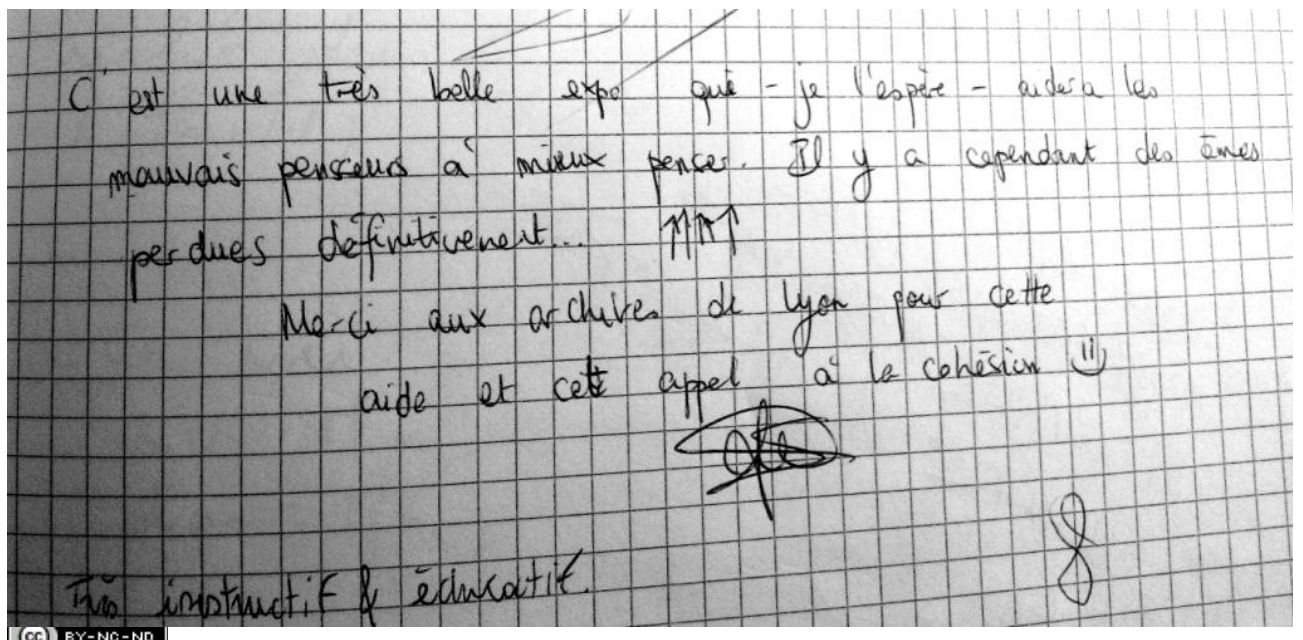 C'est une très belle expo qui - je l'espère - aidera les
mauvais penseurs à mieux penser. Il y a cependant des âmes
perdues définitivement... ↑↑↑↑
Merci aux archives de Lyon pour cette
aide et cet appel à la cohésion
Très instructif & éducatif.
CC BY-NC-ND